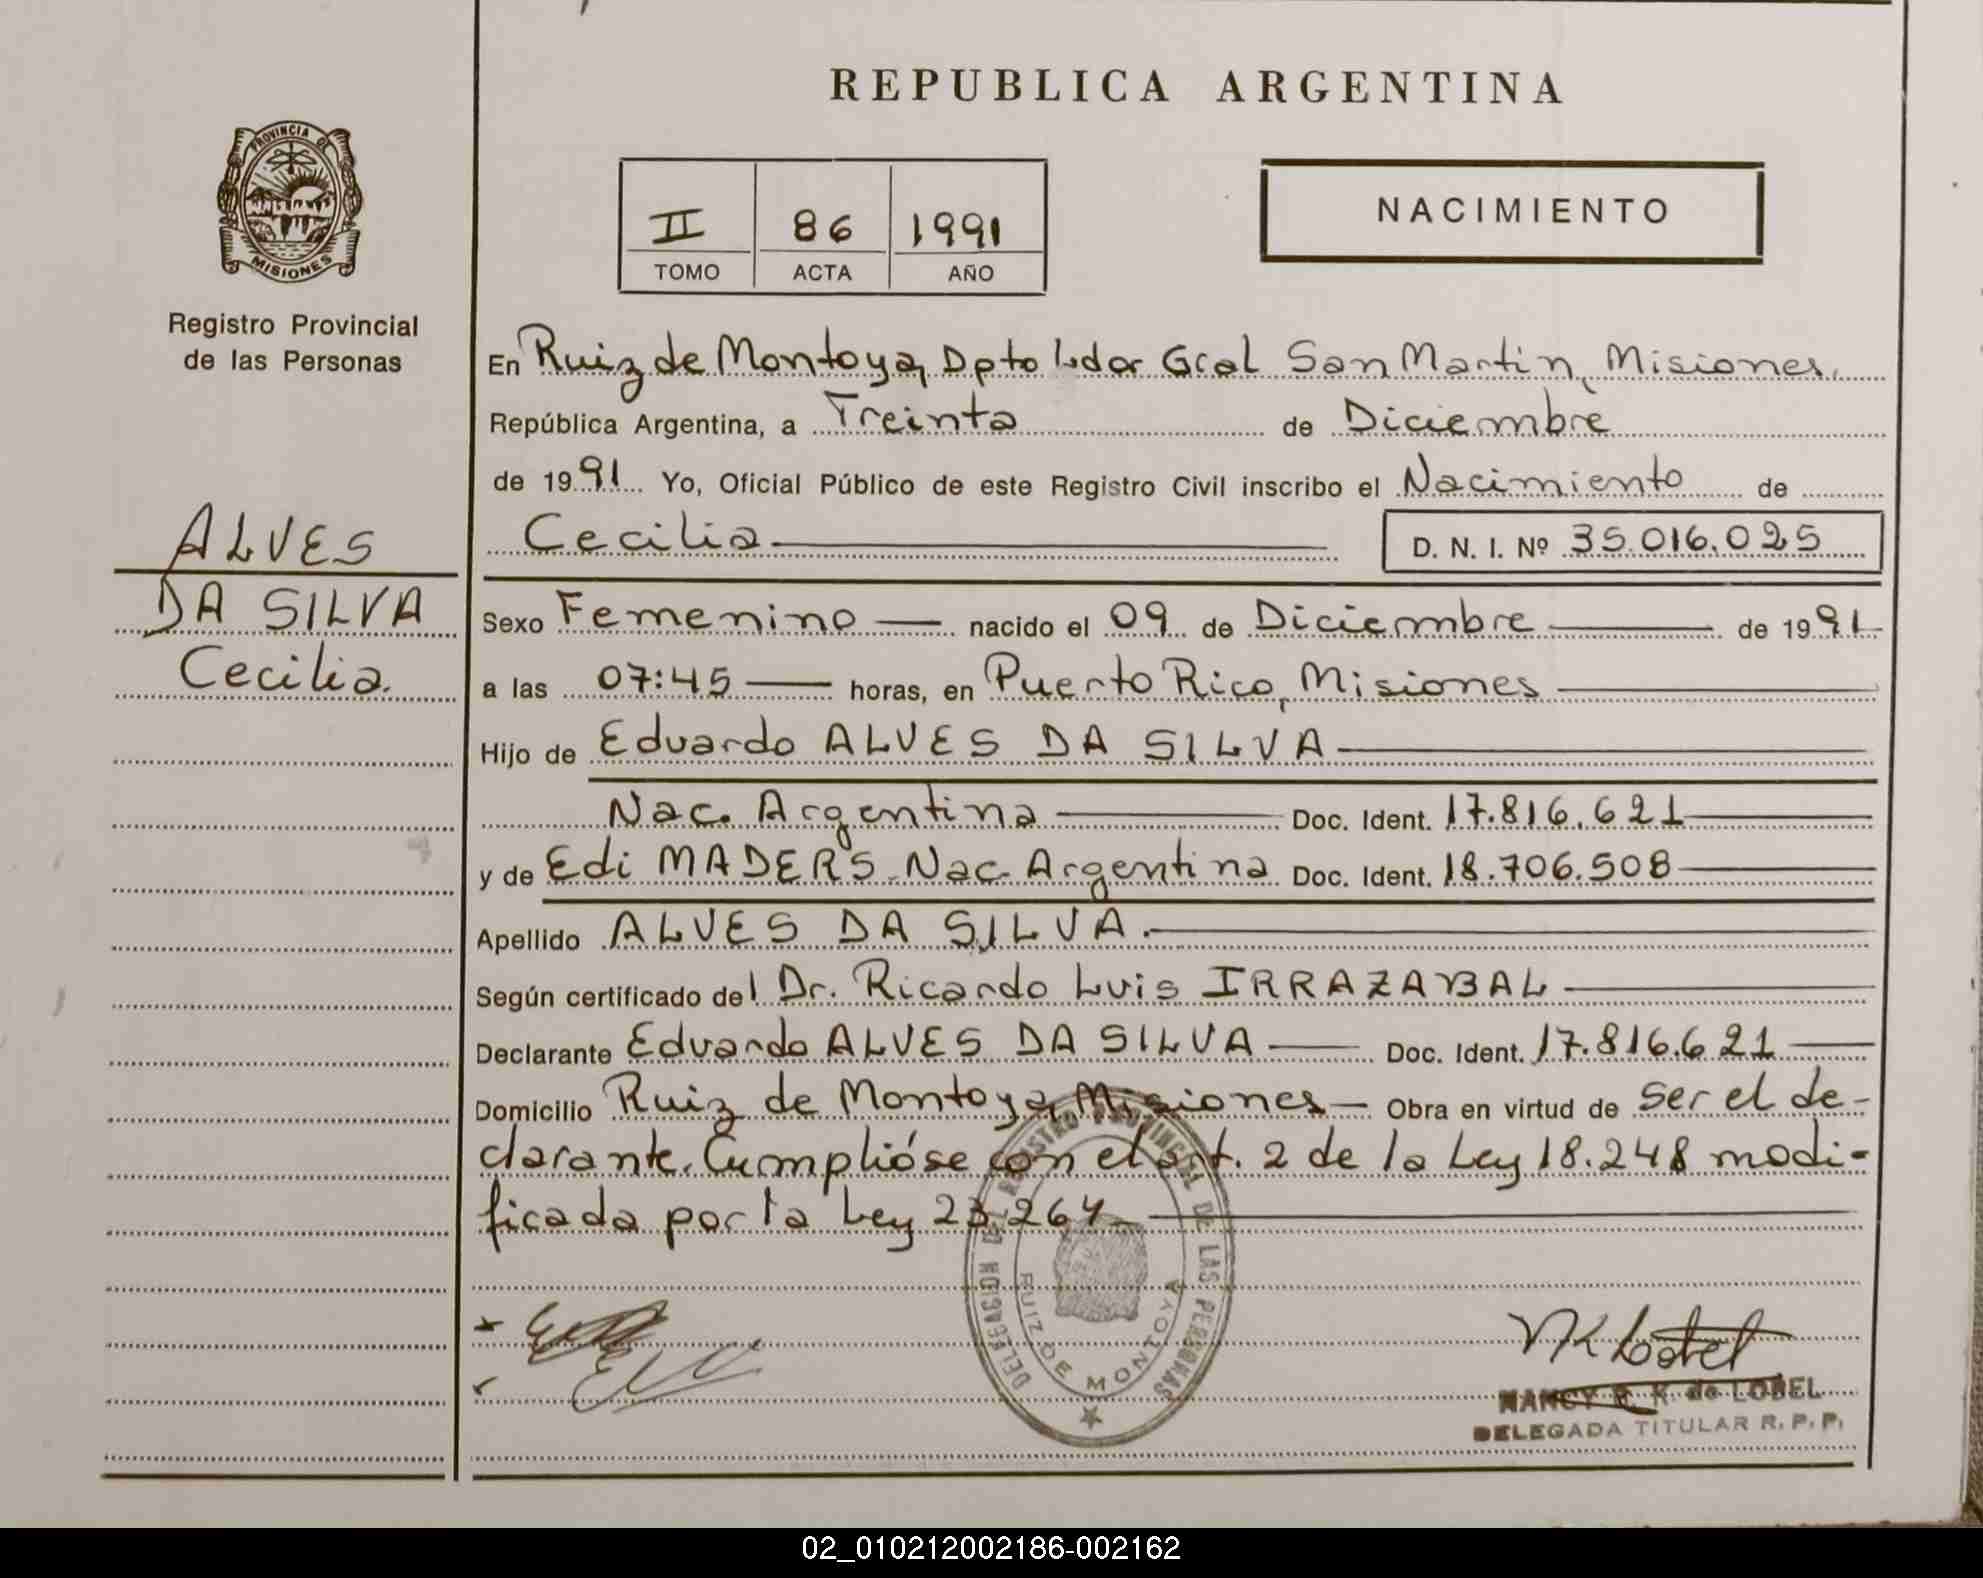 REPUBLICA ARGENTINA
PROVINCIA DE
MISIONES
Registro Provincial
de las Personas
II 86 1991
TOMO ACTA AÑO
NACIMIENTO
En Ruiz de Montoya, Dpto Ldor Gral San Martin, Misiones.
República Argentina, a Treinta de Diciembre
de 1991 Yo, Oficial Público de este Registro Civil inscribo el Nacimiento de
Cecilia D. N. I. Nº 35.016.025
ALVES
DA SILVA
Cecilia.
Sexo Femenino nacido el 09 de Diciembre de 1991
a las 07:45 horas, en Puerto Rico, Misiones
Hijo de Eduardo ALVES DA SILVA
Nac. Argentina Doc. Ident. 17.816.621
y de Edi MADERS. Nac. Argentina Doc. Ident. 18.706.508
Apellido ALVES DA SILVA.
Según certificado del Dr. Ricardo Luis IRRAZABAL
Declarante Eduardo ALVES DA SILVA Doc. Ident. 17.816.621
Domicilio Ruiz de Montoya, Misiones - Obra en virtud de ser el de-
clarante. Cumplióse con el art. 2 de la Ley 18.248 modi-
ficada por la Ley 23.264.
DELEGACION DEL REGISTRO PROVINCIAL DE LAS PERSONAS
RUIZ DE MONTOYA
NANCY R. K. de LOBEL
DELEGADA TITULAR R. P. P.
02_010212002186-002162